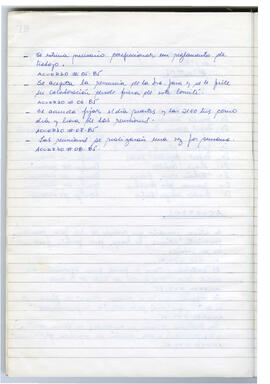 - Se estima necesario confeccionar un reglamento de
trabajo.
ACUERDO # 05-85
- Se acepta la renuncia de la Sra. Jara y se le pide
su colaboración desde fuera de este comité.
ACUERDO # 06-85
- Se acuerda fijar el día martes y las 2000 hrs como
día y hora de las reuniones.
ACUERDO # 07-85
- Las reuniones se realizarán una vez por semana.
ACUERDO # 08-85.